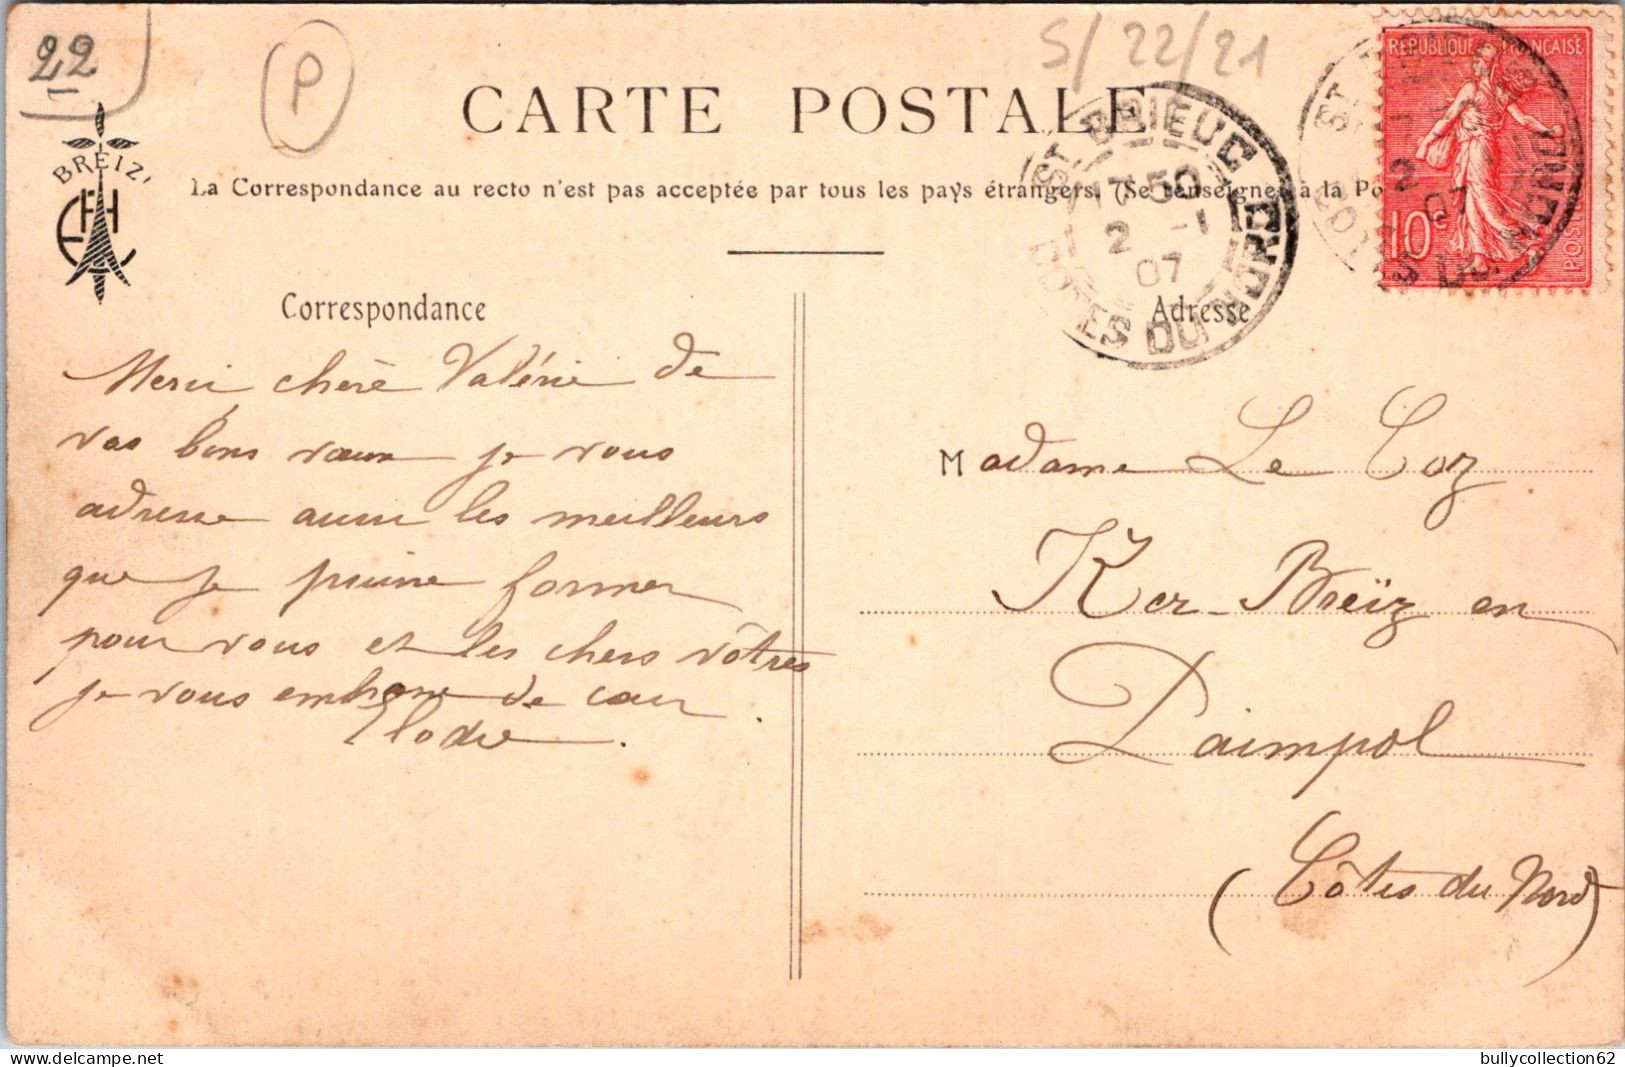 22
P
S/22/21
BREIZ'
CARTE POSTALE
La Correspondance au recto n'est pas acceptée par tous les pays étrangers. (Se renseigner à la Po
REPUBLIQUE FRANÇAISE
10c
POSTES
ST BRIEUC
17 50
2 -1
07
COTES DU NORD
Correspondance
Adresse
Merci, chère Valérie de
vos bons vœux je vous
adresse aussi les meilleurs
que je puisse former
pour vous et les chers vôtres
je vous embrasse de cœur.
Elodie.
Madame Le Coz
Ker-Breïz en
Paimpol
(Côtes du Nord)
bullycollection62